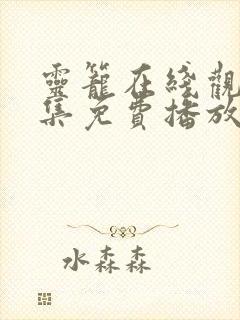 靈籠在綫觀
集免費播放
水森森